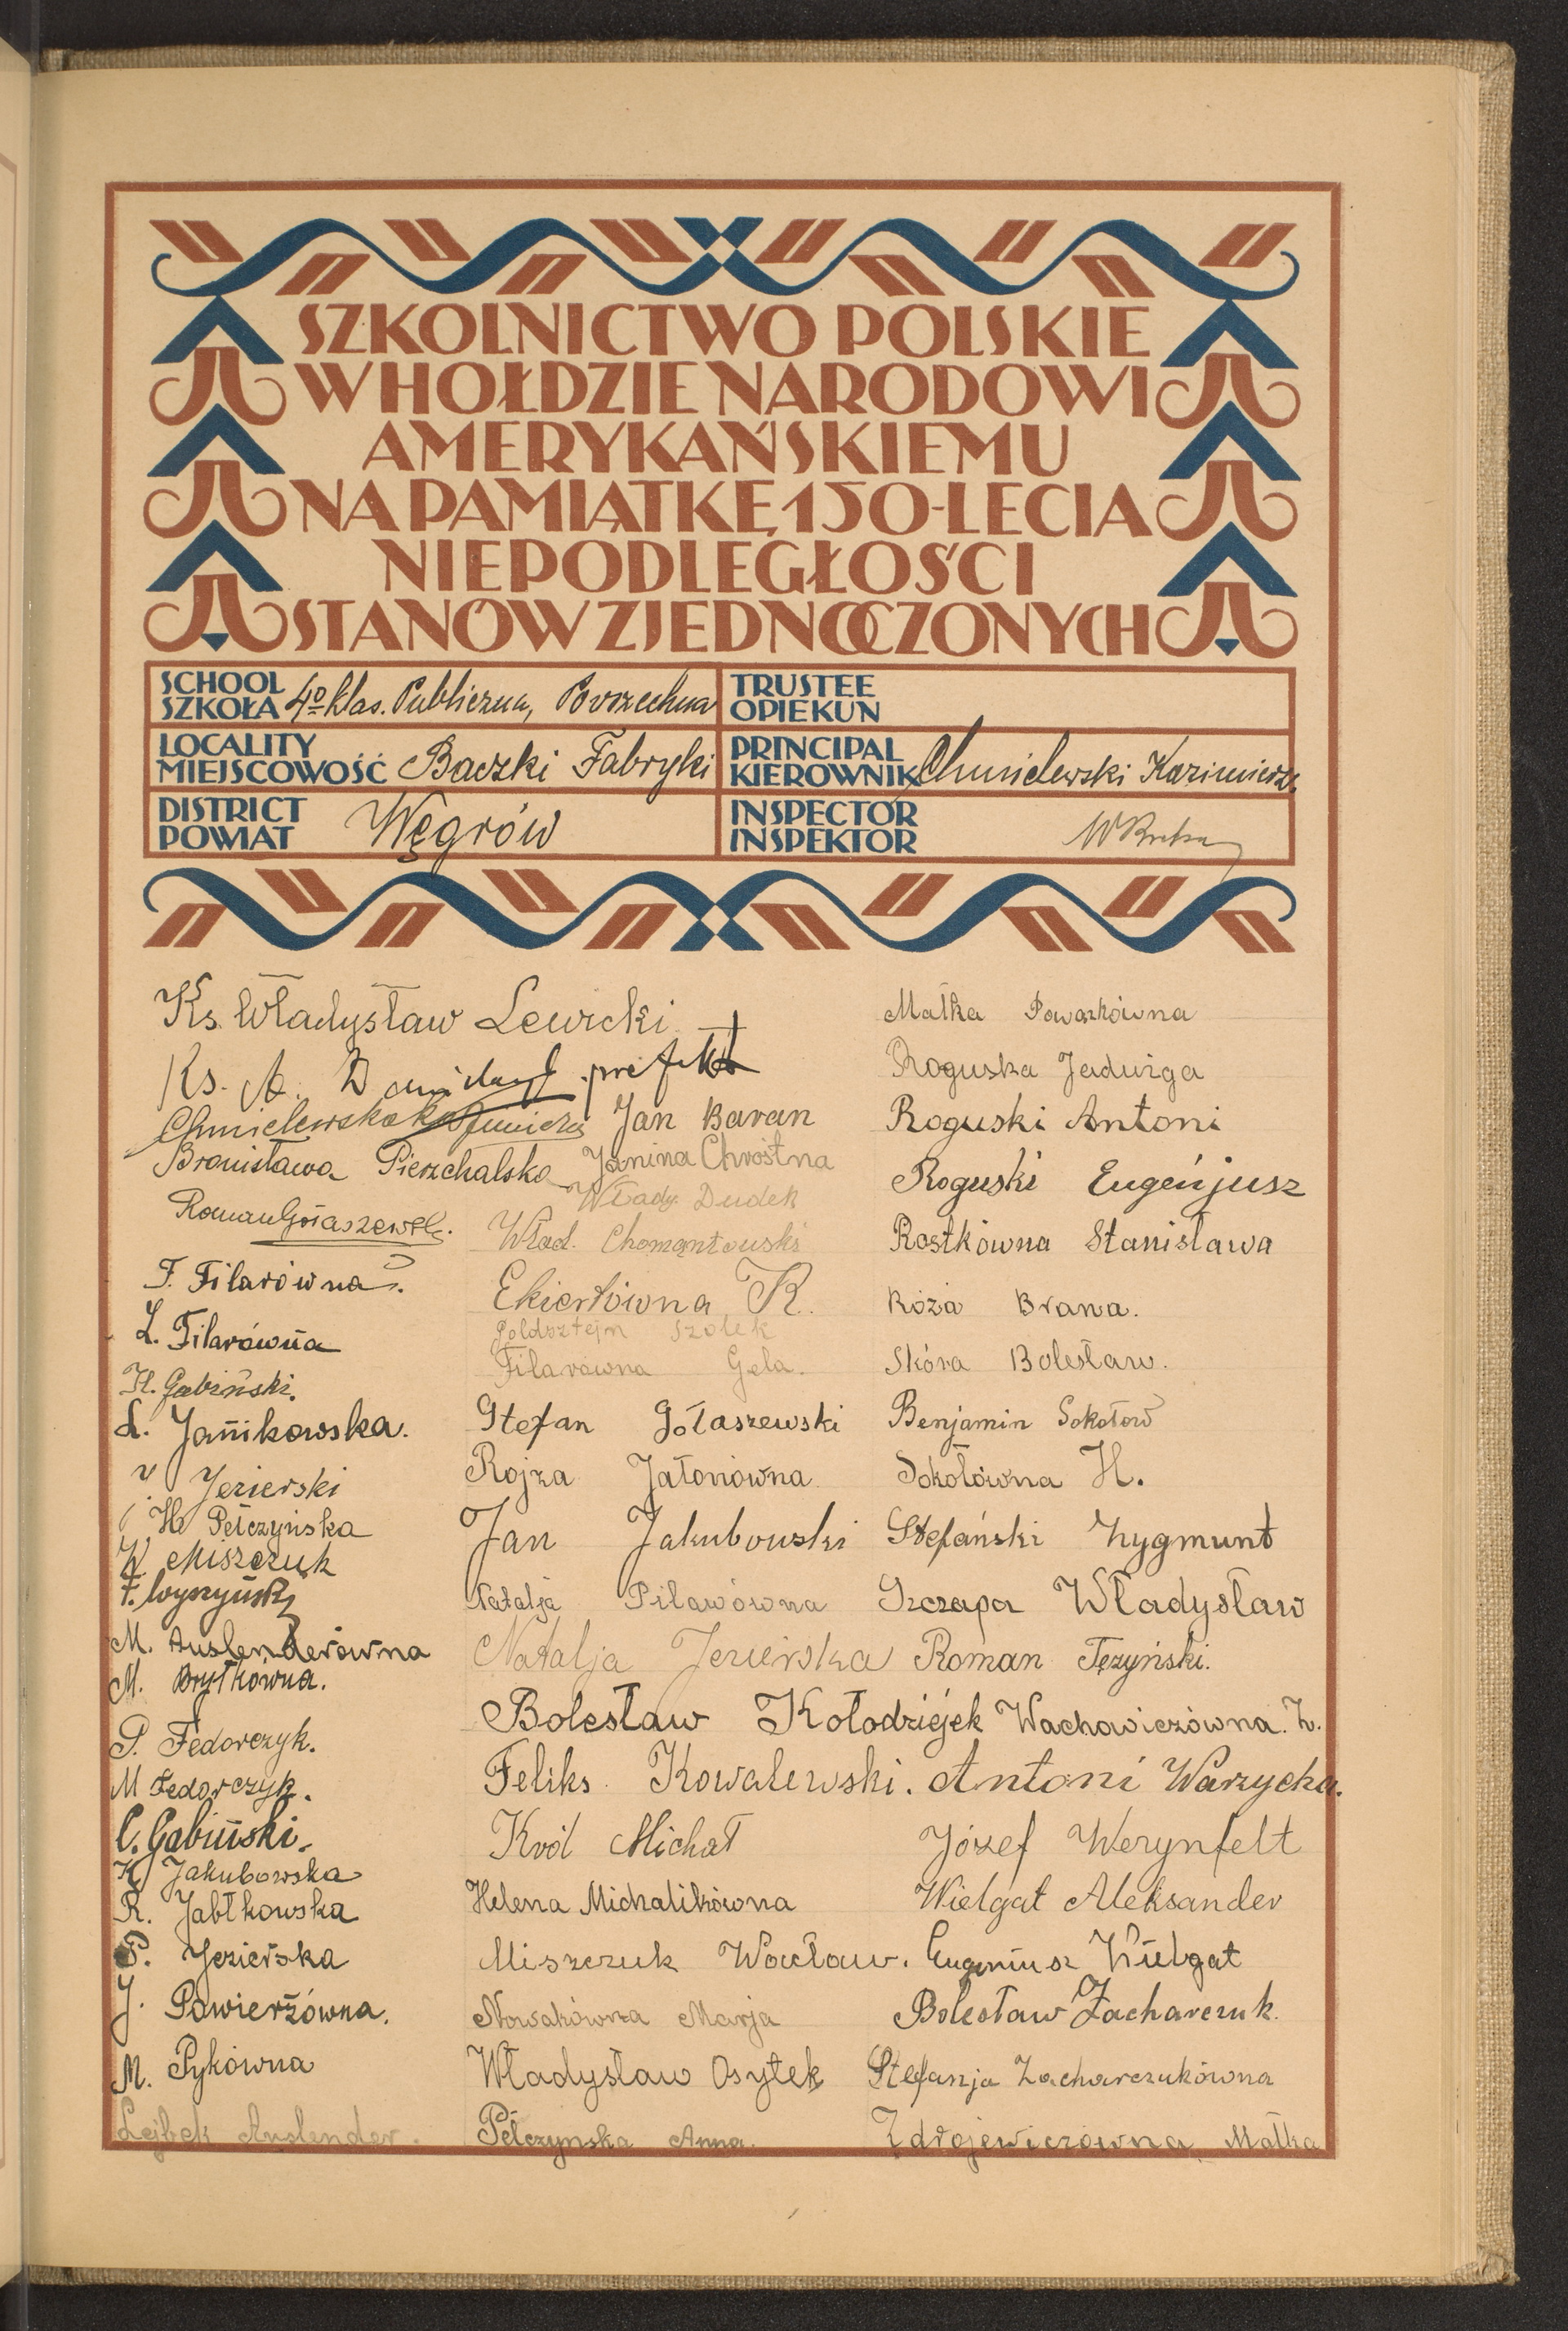 SZKOLNICTWO POLSKIE
W HOŁDZIE NARODOWI
AMERYKAŃSKIEMU
NA PAMIĄTKĘ 150-LECIA
NIEPODLEGŁOŚCI
STANÓW ZJEDNOCZONYCH
SCHOOL
SZKOŁA
4º klas. Publiczna, Powszechna
TRUSTEE
OPIEKUN
LOCALITY
MIEJSCOWOŚĆ
Baczki Fabryki
PRINCIPAL
KIEROWNIK
Chmielewski Kazimierz.
DISTRICT
POWIAT
Węgrów
INSPECTOR
INSPEKTOR
Ks. Władysław Lewicki
Ks. A. prefekt
Chmielewska
Bronisława Pierzchalska
Roman Gołaszewski.
F. Filarówna.
L. Filarówna
H. Gabiński.
L. Janikowska.
Jezierski
H Pełczyńska
W Miszczuk
F. Wyszyński
M. Auslenderówna
M. Brytkówna.
P. Fedorczyk.
M Fedorczyk.
C. Gabiński.
K Jakubowska
R. Jabłkowska
P. Jezierska
J. Powierżówna.
M. Pykówna
Lejbek Auslender.
Jan Baran
Janina Chróstna
Włady. Dudek
Wład. Chomantowski
Ekiertówna R.
Goldsztejn Szolek
Filarówna Gela.
Stefan Gołaszewski
Rojza Jałonówna
Jan Jakubowski
Natalja Piławówna
Natalja Jezierska
Bolesław Kołodziejek
Feliks Kowalewski.
Król Michał
Helena Michalikówna
Miszczuk Wacław.
Nowakówna Marja
Władysław Osytek
Pełczynska Anna.
Małka Powązkówna
Roguska Jadwiga
Roguski Antoni
Roguski Eugenjusz
Rostkówna Stanisława
Róża Brana.
Skóra Bolesław.
Benjamin Sokołow
Sokołówna H.
Stefański Zygmunt
Szczapa Władysław
Roman Tęzyński.
Wachowiczówna. Z.
Antoni Warzycha.
Józef Werynfelt
Wielgat Aleksander
Eugeniusz Wielgat
Bolesław Zacharczuk.
Stefanja Zacharczukówna
Zdrojewiczówna Małka